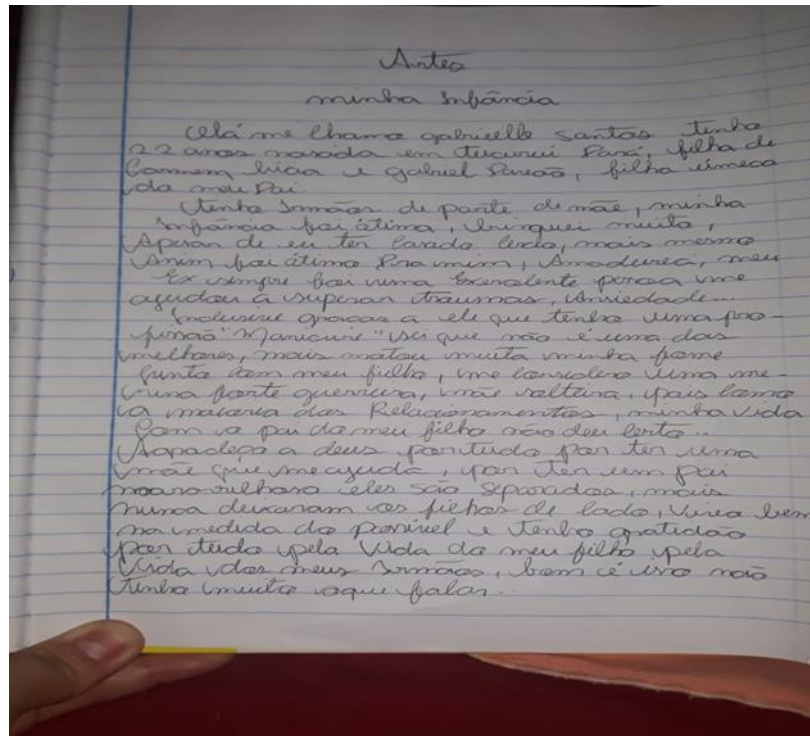 Artes
minha Infância
Olá me chamo gabrielle Santos tenho
22 anos nascida em tucurui Pará, filha de
Carmem lúcia e gabriel Pavão, filha uimeca
do meu Pai.
Tenho Irmãos de parte de mãe, minha
Infância foi ótima, brinquei muito,
Apesar de eu ter casado cedo, mais mesmo
Assim foi ótimo Pra mim, Amadureci, meu
Ex sempre foi uma Excelente pessoa me
ajudou a superar traumas, Ansiedade...
Inclusive graças a ele que tenho uma pro-
fissão "Manicure" sei que não é uma das
melhores, mais matou muita minha fome
Junto com meu filho, me considero uma me-
nina forte guerreira, mãe solteira, pois como
a maioria dos Relacionamentos, minha vida
Com o pai do meu filho não deu certo...
Agradeço a deus por tudo por ter uma
mãe que me ajuda, por ter um pai
maravilhoso eles são Separados, mais
nunca deixaram os filhos de lado, Vivo bem
na medida do possivel e tenho gratidão
por tudo pela Vida do meu filho pela
Vida dos meus Irmãos, bom é isso não
tenho muito oque falar.